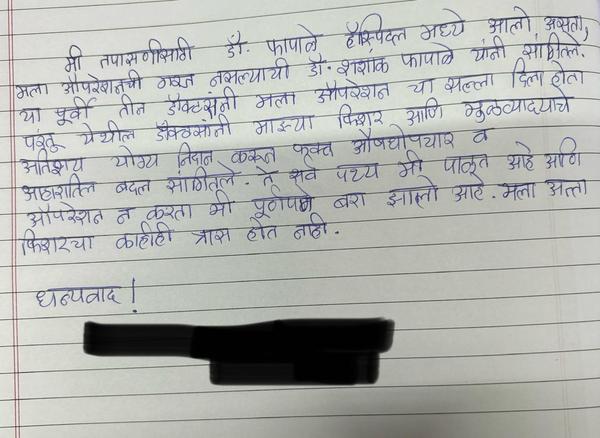 मी तपासणीसाठी डॉ. फापाळे हॉस्पिटल मध्ये आलो असता,
मला ऑपरेशनची गरज नसल्याची डॉ. शशांक फापाळे यांनी सांगितले.
या पूर्वी तीन डॉक्टरांनी मला ऑपरेशन चा सल्ला दिला होता
परंतु येथील डॉक्टरांनी माझ्या फिशर आणि मुळव्याधाचे
अतिशय योग्य निदान करून फक्त औषधोपचार व
आहारातिल बदल सांगितले. ते सर्व पथ्य मी पाळत आहे आणि
ऑपरेशन न करता मी पूर्णपणे बरा झालो आहे. मला आता
फिशरचा काहीही त्रास होत नाही.
धन्यवाद !